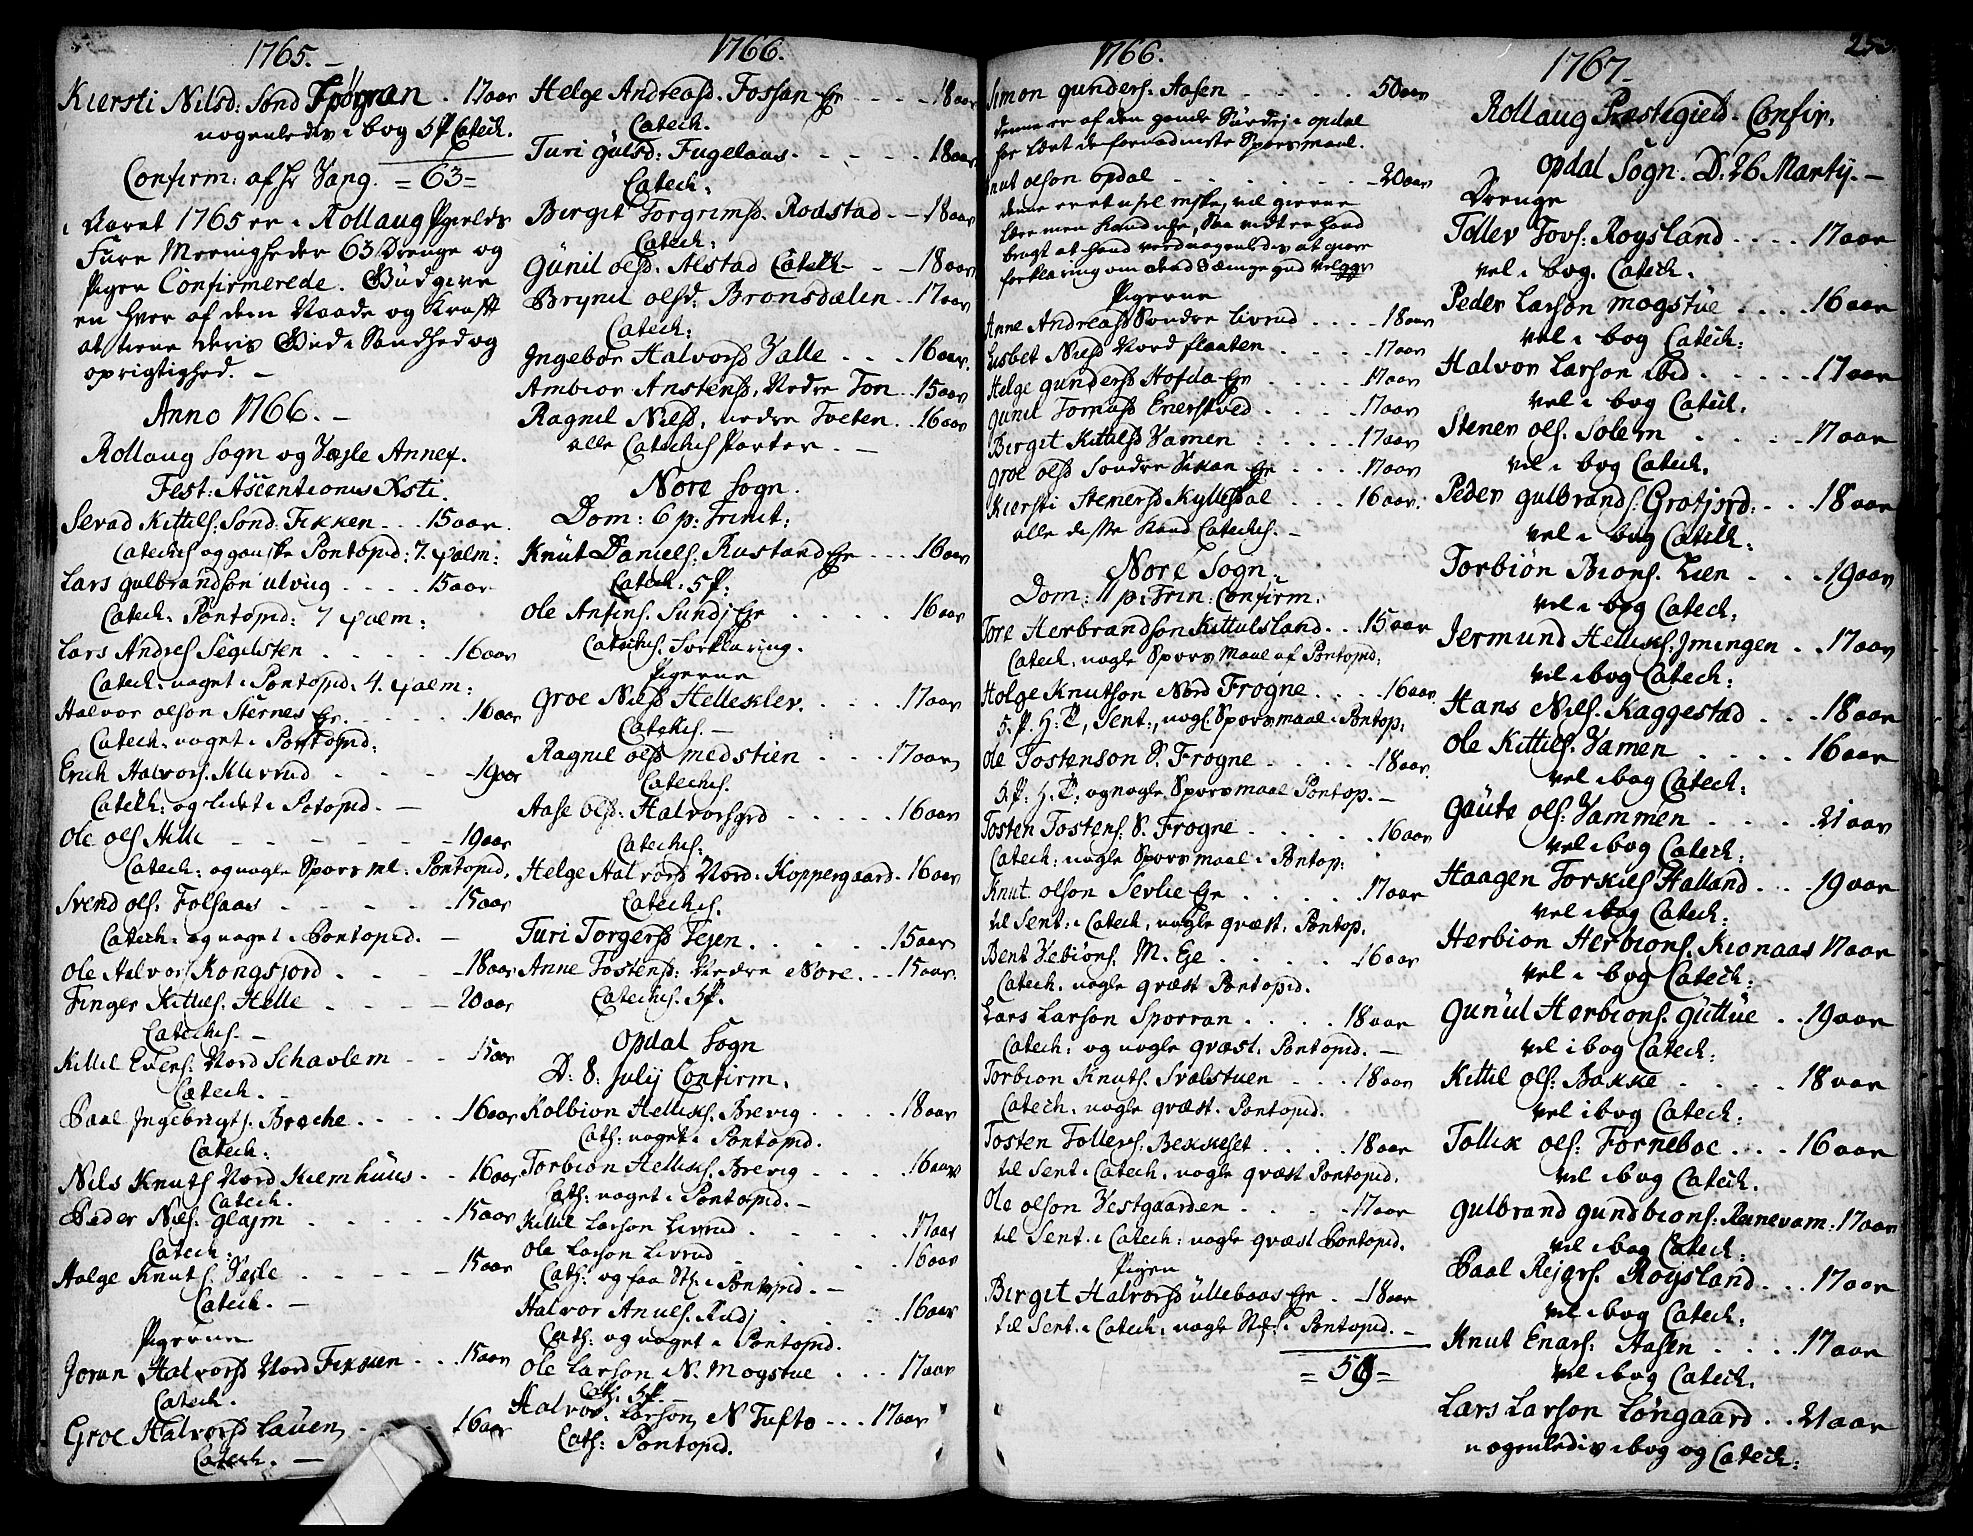 1765.
Kiersti Nilsd: Sønd Spørran . 17 aar
nogenledes i bog 5 P. Catech.
Confirm: af Hr Vang. = 63 =
i Aaret 1765 er i Rollaug Pgields
Fiire Meenigheder 63 Drenge og
Piger Confirmerede. Gud give
en hver af dem Naade og Krafft
at tiene deris Gud i Sandhed og
oprigtighed. -
Anno 1766. -
Rollaug Sogn og Vegle Annex.
Fest: Ascentionis Xsti.
Sevad Kittils: Sond: Fikken . . 15 aar.
Cateches og ganske Pontopid: 7 psalm:
Lars gulbrandson ulvig . . . . 15 aar
Catech. Pontopid: 7 psalm:
Lars Andres Segelsten . . . . 16 aar
Catech. noget i Pontopid. 4. psalm:
Halvor olson Sternes Ege . . . . 16 aar
Catech: noget i Pontopid:
Erich Halvors. Kliverud . . . . 19 aar
Catech: og lidet i Potopid. -
Ole ols Helle - - - - - 19 aar
Catech: og nogle Spørsml: Pontopid.
Svend ols: Folsaas - - - - 15 aar
Catech: og noget i Pontopid. -
Ole Halvors Kongsjord . . . . 18 aar
Finger Kittils. Helle . . . . 20 aar
Cateches. -
Kittil Evens: Nord Schavlem . . 15 aar
Catech. -
Paal Ingebrigts: Broche . . . . 16 aar
Catech:
Nils Knuts Nord Kiemhuus . . 16 aar
Catech.
Peder Nils. glaim . . . . . 15 aar
Catech.
Holge Knuts. Vesle . . . . . 15 aar
Catech. -
Pigerne
Joran Halvorsd Nord Fikken . . 15 aar
Catech.
Groe Halvorsd Lauen . . . . 16 aar
Catech. -
1766.
Helge Andreasd. Fossan Ege . . . . 18 aar
Catech.
Turi gulsd: Fugelaas . . . . . 18 aar
Catech:
Birgit Torgrimsd. Rodstad . . 18 aar
Catech:
Gunil olsd. Alstad Catech . . 18 aar
Brynil olsd: Bronsdalen . . 17 aar
Catech:
Ingebor Halvorsd Valle . . . 16 aar.
Ambior Anstensd, Nedre Ton . . 15 aar
Ragnil Nilsd, nedre Tveten . . 16 aar
alle Cateches Parter. -
Nore Sogn.
Dom: 6 p: Trinit:
Knut Daniels. Rustand Ege . . . 16 aar
Catech. 5 P:
Ole Anfins. Sundj Ege . . . . 16 aar
Cateches. Forklaring.
Pigerne
Groe Nilsd Helleklev. . . . . 17 aar
Cateches. -
Ragnil olsd medstien . . . 17 aar
Cateches.
Aase olsd: Halvorsgrd . . . . 16 aar
Cateches:
Helge Halvord Nord: Koppergaard . 16 aar
Cateches.
Turi Torgersd Tejen . . . . 15 aar
Anne Tostensd: Nedre Nore . . . 15 aar.
Cateches. 5 P.
Opdal Sogn
D: 8: julij Confirm.
Kolbion Helliks. Brevig . . . . 18 aar
Cath: noget i Pontopid.
Torbion Helliks. Brevig . . . 16 aar
Cath: noget i Pontopid. -
Kittil Larson Livrud . . . . 17 aar
Ole Larson Livrud . . . . . 16 aar
Cath: og faa Sth: i Pontopid. -
Halvor Anuls. Rudj . . . . 16 aar
Cath: og noget i Pontopid.
Ole Larson N. Mogstue . . . 17 aar
Cath. 5 P. -
Halvor Larson N Tufto . . . 17 aar
Cath: Pontopid.
1766.
Simon gunders. Aasen . . . . . 50 aar
denne er af den gamle Surdej i opdal
har lært de fornødenste Spørsmaal.
Knut olson opdal . . . . . . . 20 aar
denne er et usel mske, vil gierne
lære men Hand
brugt at Hand ved nogenledes at giøre
forklaring om
Pigerne
Anne Andreasd Sondre Livrud . . . . 18 aar
Lisbet Nilsd Nord flaaten . . . . . 17 aar
Helge gundersd Hofda Ege . . . . . 17 aar
Gunil Tomasd Enerstved . . . . 17 aar
Birgit Kittilsd Vamen . . . . . 17 aar
Groe olsd Sondre Sikan Ege . . . . 17 aar
Kiersti Stenersd Kyllesdal . . . 16 aar.
alle disse kand Cateches. -
Nore Sogn.
Dom: 11 p: Trin: Confirm.
Tore Herbrandson Kittulsland . . 15 aar
Catech. nogle Spørsmaal af Pontopid:
Holge Knutson Nord Frogne . . . . 16 aar.
5. P. H: T, Sent:, nogl. Spørsmaal i Pontop.
Ole Tostenson S. Frogne . . . . . 18 aar.
5. P: H: T: og nogle Spørsmaal Pontop. -
Tosten Tostens: S. Frogne . . . . . 16 aar
Catech: nogle Spørsmaal i Pontop:
Knut olson Sevlie Ege . . . . . 17 aar
til Sent: i Catech: nogle qvæst. Pontop.
Bent Vebions: M. Ege . . . . . 16 aar
Catech. nogle qvæst Pontopid.
Lars Larson Sporran . . . . 18 aar
Catech: og nogle qvæst. Pontopid. -
Torbion Knuts. Svalstuen . . . 18 aar
Catech. nogle qvæst. Pontopid.
Tosten Tollefs: Bekkeset . . . . 18 aar
til Sent i Catech. nogle qvæst Pontopid.
Ole olson Vestgaarden . . . . 17 aar
til Sent. i Catech: nogle qvæst Pontopid.
Pigen
Birgit Halvorsd ullebaas Ege . . 18 aar
til Sent: i Catech. nogle Sth: i Pontopid. -
= 59 =
1767.
Rollaug Præstegield. Confir.
Opdal Sogn. D. 26 Martij. -
Drenge
Tollev Tovs: Roysland . . . . 17 aar
vel i bog. Catech.
Peder Larson mogstue . . . . 16 aar
vel i bog Catech:
Halvor Larson ibid . . . . . 17 aar
vel i bog Catech.
Stener ols. Solem . . . . . 17 aar
vel i bog Catech.
Peder gulbrands. Grofjord: . . 18 aar
vel i bog Catech:
Torbiön Bions. Lien . . . 19 aar
vel i bog Catech:
Jermund Helliks. Jmingen . . 17 aar
vel i bog Catech:
Hans Nils. Kaggestad . . . 18 aar
Ole Kittils. Vamen . . . . . 16 aar
vel i bog Catech:
Gaute ols: Vammen . . . . . 21 aar
vel i bog Catech:
Haagen Torkils Halland . . . 19 aar
vel i bog Catech:
Herbion Herbions. Kionaas 17 aar
vel i bog Catech:
Gunul Herbions. Guttue . . 19 aar
vel i bog Catech:
Kittil ols: Bakke . . . . 18 aar
vel i bog Catech:
Tollik ols: Forneboe . . . 16 aar
vel i bog Catech.
Gulbrand gundbions: Rennevam: 17 aar
vel i bog Catech:
Paal Rejers. Roysland . . . 17 aar
vel i bog Catech:
Knut Enars: Aasen . . . . 17 aar
vel i bog Catech.
Lars Larson Longaard . . 21 aar
nogenledes i bog og Catech: